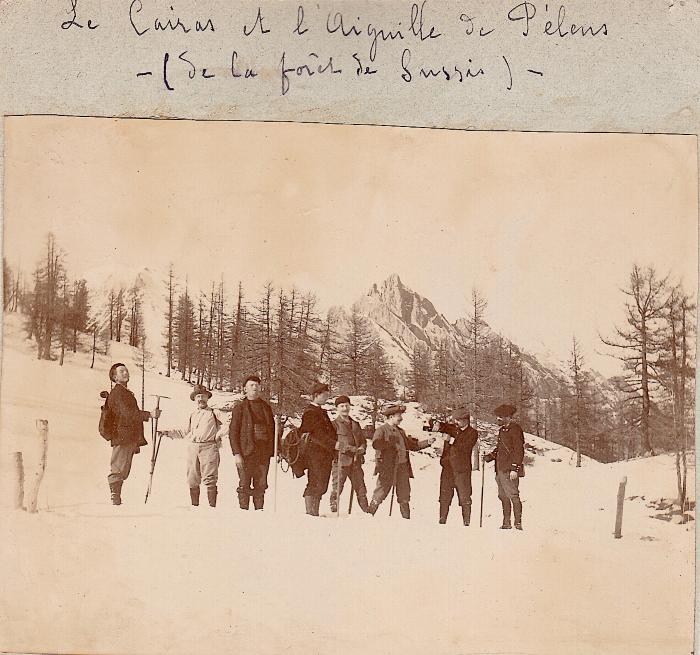 Le Cairas et l'Aiguille de Pélens
- (de la forêt de Sussis) -